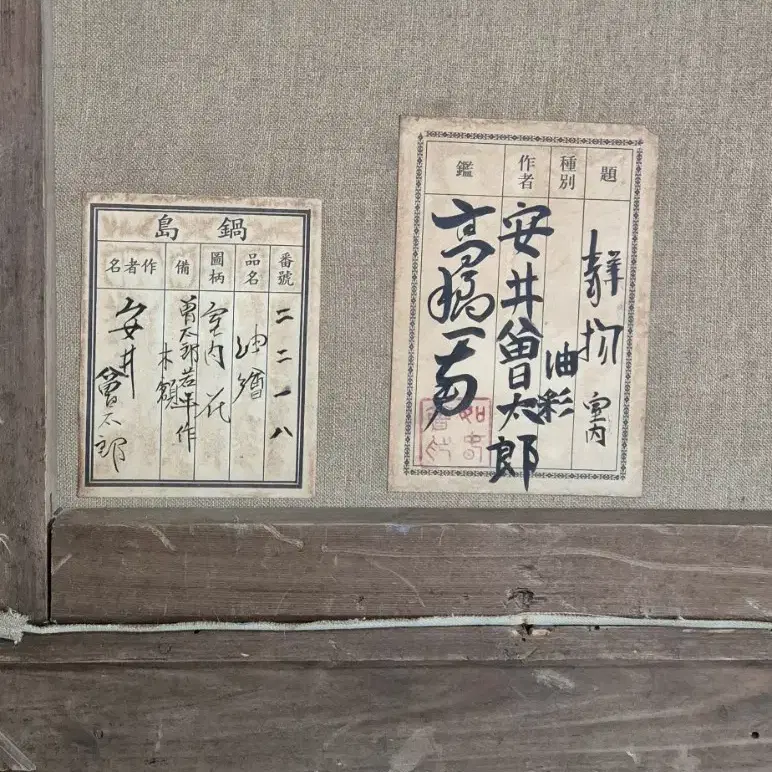 題
静物 室内
種別
油彩
作者
安井曾太郎
鑑
高橋一
鍋島
番號
二二一八
品名
油繪
圖柄
室内 花
備
曾太郎若年作
木額
作者名
安井曾太郎